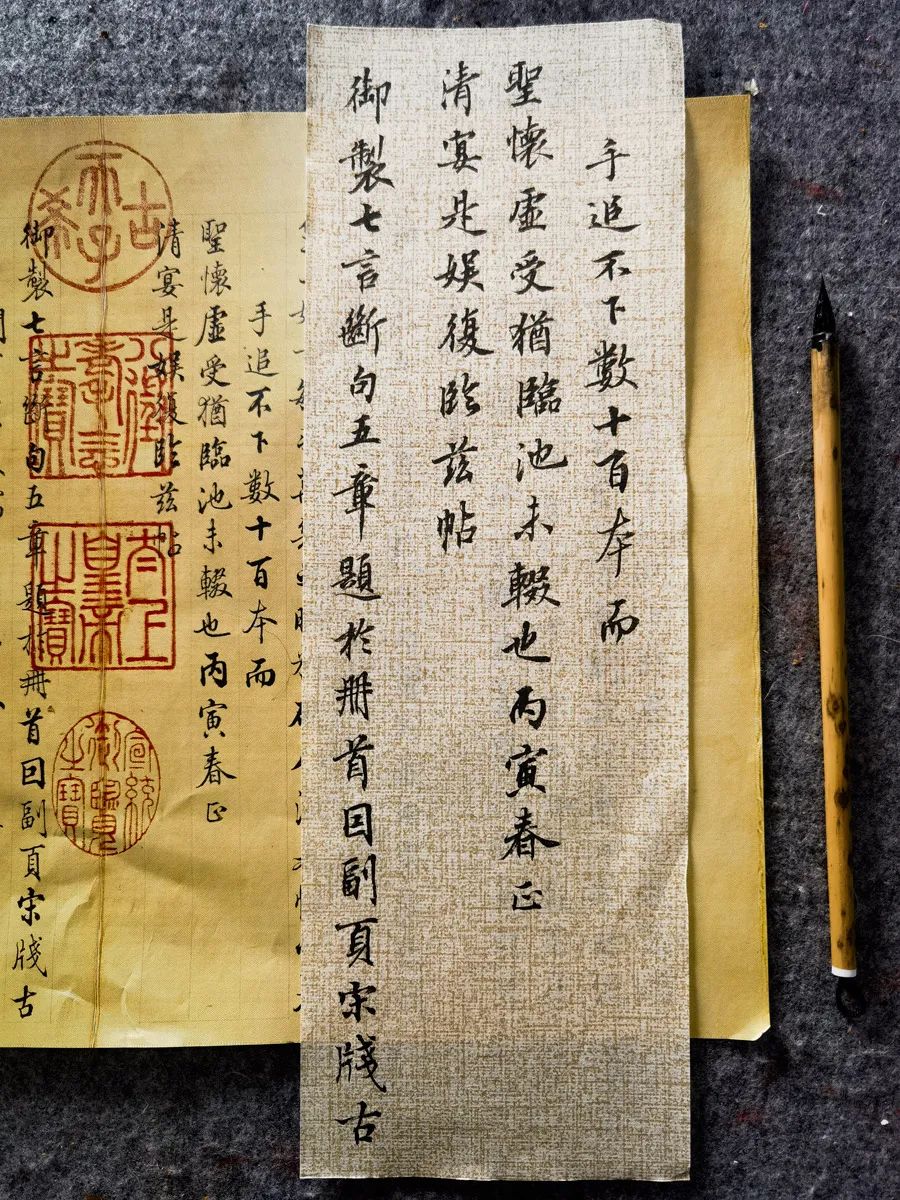 手追不下數十百本而
聖懷虛受猶臨池未輟也丙寅春正
清宴是娛復臨茲帖
御製七言斷句五章題於冊首回副頁宋牋古
手追不下數十百本而
聖懷虛受猶臨池未輟也丙寅春正
清宴是娛復臨茲帖
御製七言斷句五章題於冊首回副頁宋牋古
古希天子
八徵耄念之寶
太上皇帝之寶
宣統御覽之寶